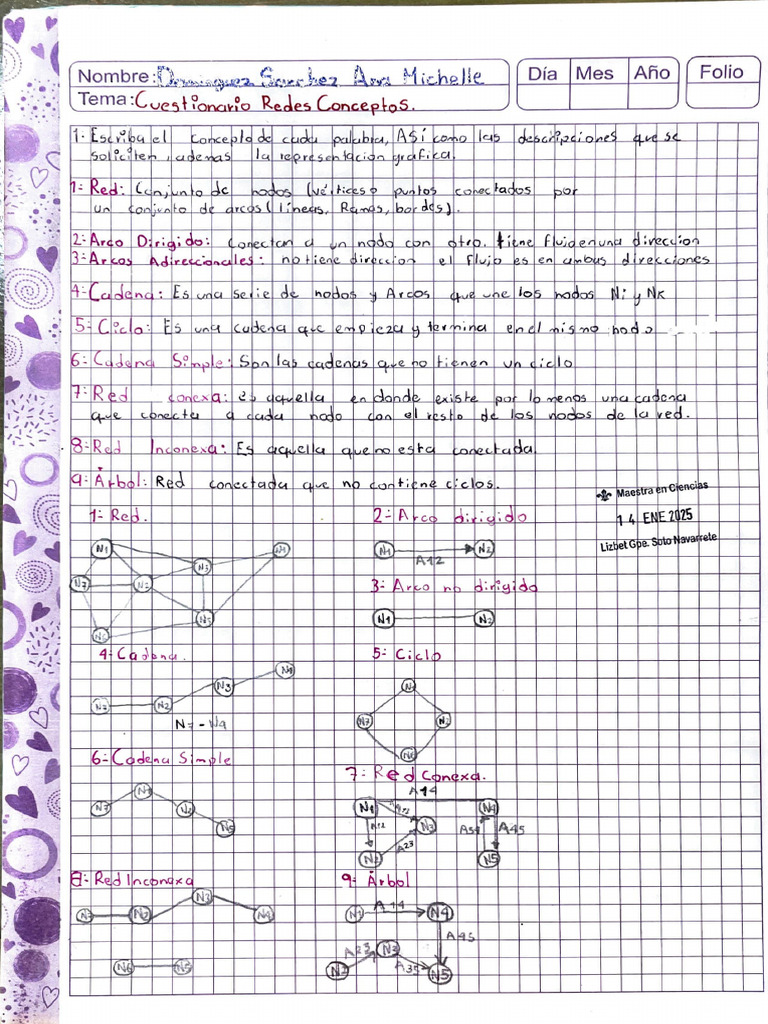 Nombre: Dominguez Sanchez Ana Michelle
Día Mes Año Folio
Tema: Cuestionario Redes Conceptos.
1- Escriba el concepto de cada palabra, Así como las descripciones que se
soliciten, ademas la representacion grafica.
1- Red: Conjunto de nodos (vértices o puntos conectados por
un conjunto de arcos (líneas, Ramas, bordes).
2- Arco Dirigido: conectan a un nodo con otro. tiene flujo en una direccion
3- Arcos Adireccionales: no tiene direccion el flujo es en ambas direcciones
4- Cadena: Es una serie de nodos y Arcos que une los nodos Ni y Nk
5- Ciclo: Es una cadena que empieza y termina en el mismo nodo
6- Cadena Simple: Son las cadenas que no tienen un ciclo
7- Red conexa: es aquella en donde existe por lo menos una cadena
que conecta a cada nodo con el resto de los nodos de la red.
8- Red Inconexa: Es aquella que no esta conectada.
9- Árbol: Red conectada que no contiene ciclos.
Maestra en Ciencias
14 ENE 2025
Lizbet Gpe. Soto Navarrete
1- Red. 2- Arco dirigido
N1 N3 N4 N7 N2 N5 N6
N1 A12 N2
3- Arco no dirigido
N1 N2
4- Cadena. 5- Ciclo
N7 N2 N3 N4
N7 - N4
N7 N2 N6
6- Cadena Simple 7- Red Conexa.
N7 N1 N2 N5
A14
N1 A13 N4
A12 N3 A54 A45
N2 A23 N5
8- Red Inconexa 9- Árbol
N7 N2 N3 N4
N1 A14 N4
A45
N6 N5
N2 A23 N3 A35 N5